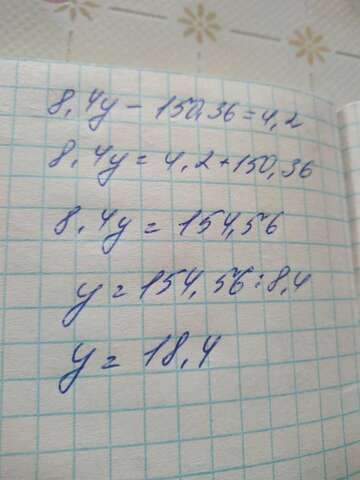 8,4y - 150,36 = 4,2
8,4y = 4,2 + 150,36
8,4y = 154,56
y = 154,56 : 8,4
y = 18,4